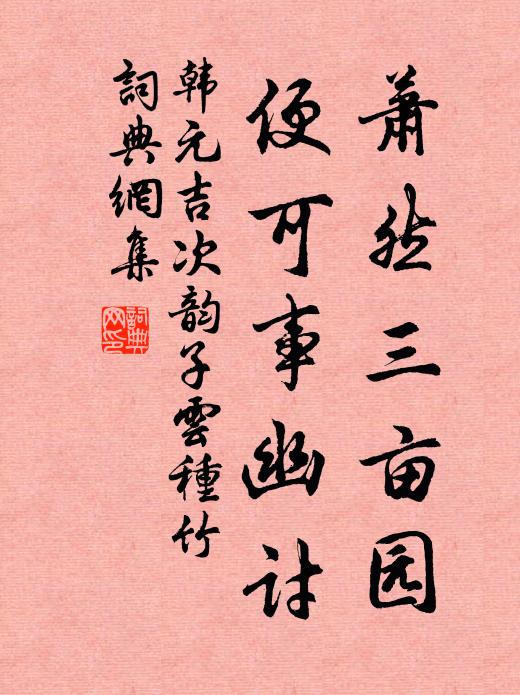 萧然三亩园
便可事幽討
韩元吉次韵子雲種竹
詞典網集
詞典网印